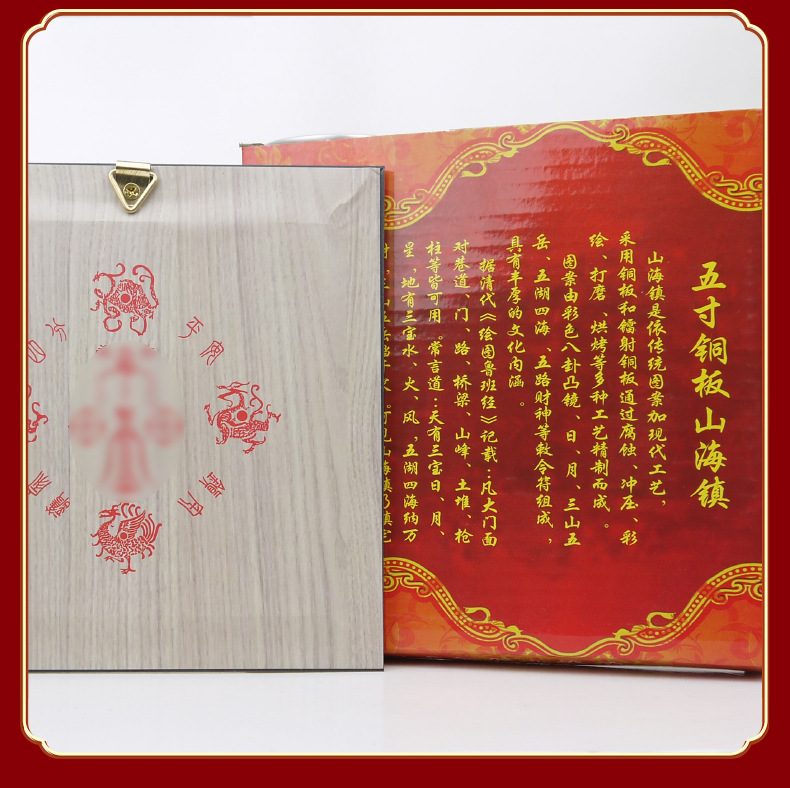 五寸铜板山海镇
山海镇是依传统图案加现代工艺，
采用铜板和镭射铜板通过腐蚀、冲压、彩
绘、打磨、烘烤等多种工艺精制而成。
图案由彩色八卦凸镜、日、月、三山五
岳、五湖四海、五路财神等敕令符组成，
具有丰厚的文化内涵。
据清代《绘图鲁班经》记载：凡大门面
对巷道、门、路、桥梁、山峰、土堆、枪
柱等皆可用。常言道：天有三宝日、月、
星，地有三宝水、火、风，五湖四海纳万